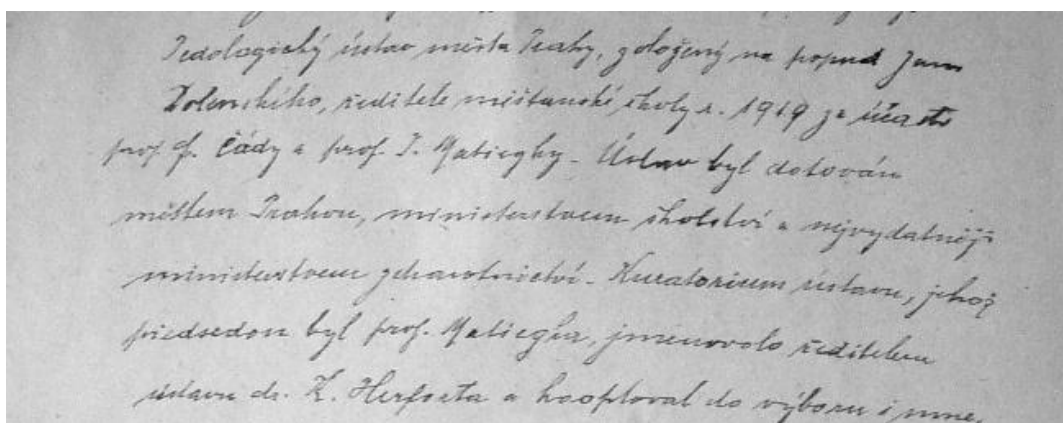 Pedologický ústav města Prahy, založený na popud Jana
Dolenského, ředitele měšťanské školy r. 1919 za účasti
prof. F. Čády a prof. J. Matiegky. Ústav byl dotován
městem Prahou, ministerstvem školství a nejvydatněji
ministerstvem zdravotnictví. Kuratorium ústavu, jehož
předsedou byl prof. Matiegka, jmenovalo ředitelem
ústavu dr. K. Herforta a kooptoval do výboru i mne,